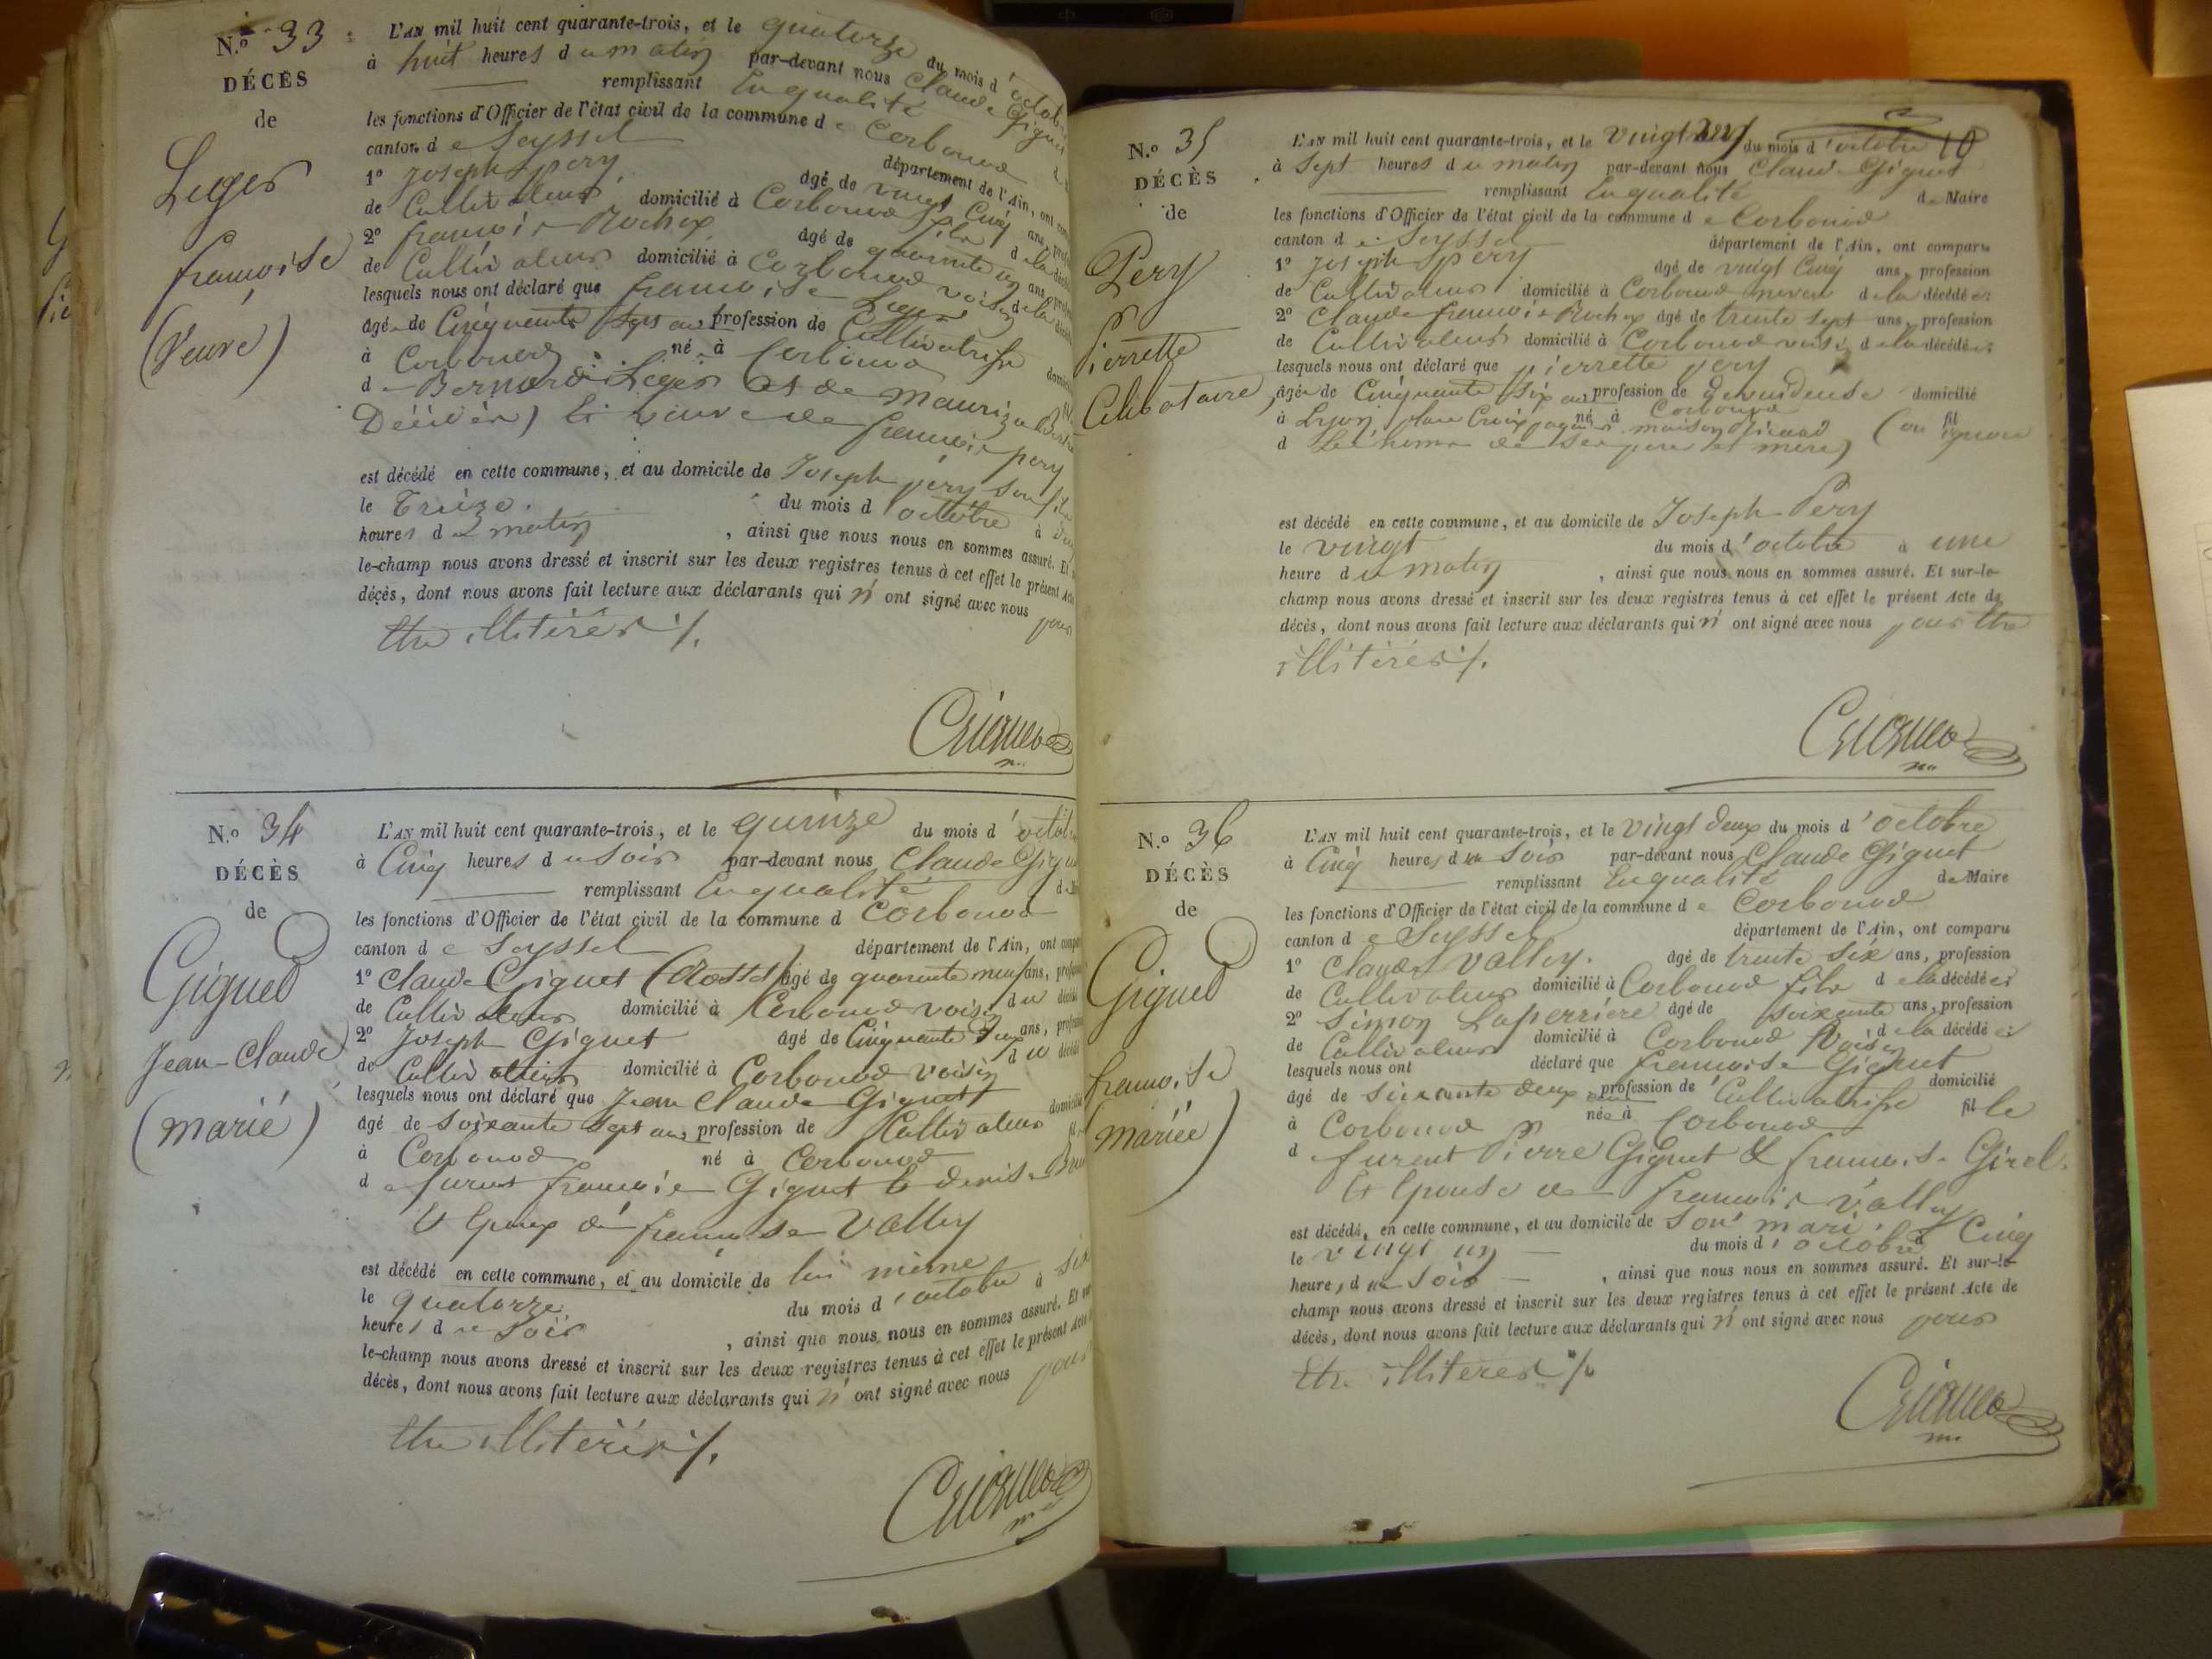 N.o 33
DÉCÈS
de
Leger
francoise
(veuve)
L'AN mil huit cent quarante-trois, et le quatorze du mois d'octobre
à huit heures du matin par-devant nous Claude Giguet
remplissant En qualité
les fonctions d'Officier de l'état civil de la commune de Corbonod
canton de Seyssel département de l'Ain, ont
1o Joseph pery âgé de vingt Cinq ans,
de Cultivateur domicilié à Corbonod fils de la
2o francois Rochex âgé de quarante un ans,
de Cultivateur domicilié à Corbonod voisin de la
lesquels nous ont déclaré que francoise Leger
âgée de Cinquante Sept ans, profession de Cultivatrice
à Corbonod né à Corbonod
de Bernard Leger et de Mauriza
Décédés) Et veuve de francois pery
est décédé en cette commune, et au domicile de Joseph pery son fils
le Treize du mois d'octobre à
heures du matin, ainsi que nous nous en sommes assuré. Et
le-champ nous avons dressé et inscrit sur les deux registres tenus à cet effet le présent Acte
décès, dont nous avons fait lecture aux déclarants qui n'ont signé avec nous pour
Etre illiterés ./.
N.o 34
DÉCÈS
de
Gigued
Jean-Claude
(marié)
L'AN mil huit cent quarante-trois, et le quinze du mois d'octobre
à Cinq heures du Soir par-devant nous Claude Giguet
remplissant En qualité
les fonctions d'Officier de l'état civil de la commune d Corbonod
canton de Seyssel département de l'Ain, ont
1o Claude Giguet (Rosset) âgé de quarante neuf ans,
de Cultivateur domicilié à Corbonod voisin du
2o Joseph Giguet âgé de Cinquante Deux ans,
de Cultivateur domicilié à Corbonod voisin du
lesquels nous ont déclaré que Jean Claude Giguet
âgé de Soixante Sept ans, profession de Cultivateur
à Corbonod né à Corbonod
de furent francois Giguet & denise
Et Epoux de francoise Valley
est décédé en cette commune, et au domicile de lui même
le quatorze du mois d'octobre à six
heures du Soir, ainsi que nous nous en sommes assuré. Et sur
le-champ nous avons dressé et inscrit sur les deux registres tenus à cet effet le présent Acte
décès, dont nous avons fait lecture aux déclarants qui n'ont signé avec nous pour
Etre illiterés ./.
N.o 35
DÉCÈS
de
Pery
Pierrette
Celibataire
19
L'AN mil huit cent quarante-trois, et le vingt du mois d'octobre
à Sept heures du matin par-devant nous Claude Giguet
remplissant En qualité de Maire
les fonctions d'Officier de l'état civil de la commune de Corbonod
canton de Seyssel département de l'Ain, ont comparu
1o Joseph pery âgé de vingt Cinq ans, profession
de Cultivateur domicilié à Corbonod neveu de la décédée;
2o Claude francois Rochex âgé de trente sept ans, profession
de Cultivateur domicilié à Corbonod voisin de la décédée;
lesquels nous ont déclaré que pierrette pery
âgée de Cinquante Six ans profession de devuideuse domicilié
à Lyon, place Croix paquet maison né à Corbonod fil
d Les noms de ses père et mère) (on ignore
est décédé en cette commune, et au domicile de Joseph Pery
le vingt du mois d'octobre à une
heure du matin, ainsi que nous nous en sommes assuré. Et sur-le-
champ nous avons dressé et inscrit sur les deux registres tenus à cet effet le présent Acte de
décès, dont nous avons fait lecture aux déclarants qui n'ont signé avec nous pour Etre
illitérés ./.
N.o 36
DÉCÈS
de
Gigued
francoise
mariée)
L'AN mil huit cent quarante-trois, et le vingt deux du mois d'octobre
à Cinq heures du Soir par-devant nous Claude Giguet
remplissant En qualité de Maire
les fonctions d'Officier de l'état civil de la commune de Corbonod
canton de Seyssel département de l'Ain, ont comparu
1o Claude Valley. âgé de trente Six ans, profession
de Cultivateur domicilié à Corbonod fils de la décédée;
2o Simon Laperriere âgé de soixante ans, profession
de Cultivateur domicilié à Corbonod Voisin de la décédée;
lesquels nous ont déclaré que francoise Giguet
âgé de soixante deux ans profession de Cultivatrice domicilié
à Corbonod née à Corbonod fille
de furent Pierre Giguet & francoise Girel
Et Epouse de francois Valley
est décédé, en cette commune, et au domicile de son mari.
le vingt un du mois d'octobre à Cinq
heures du Soir, ainsi que nous nous en sommes assuré. Et sur-le-
champ nous avons dressé et inscrit sur les deux registres tenus à cet effet le présent Acte de
décès, dont nous avons fait lecture aux déclarants qui n'ont signé avec nous pour
Etre illiterés ./.